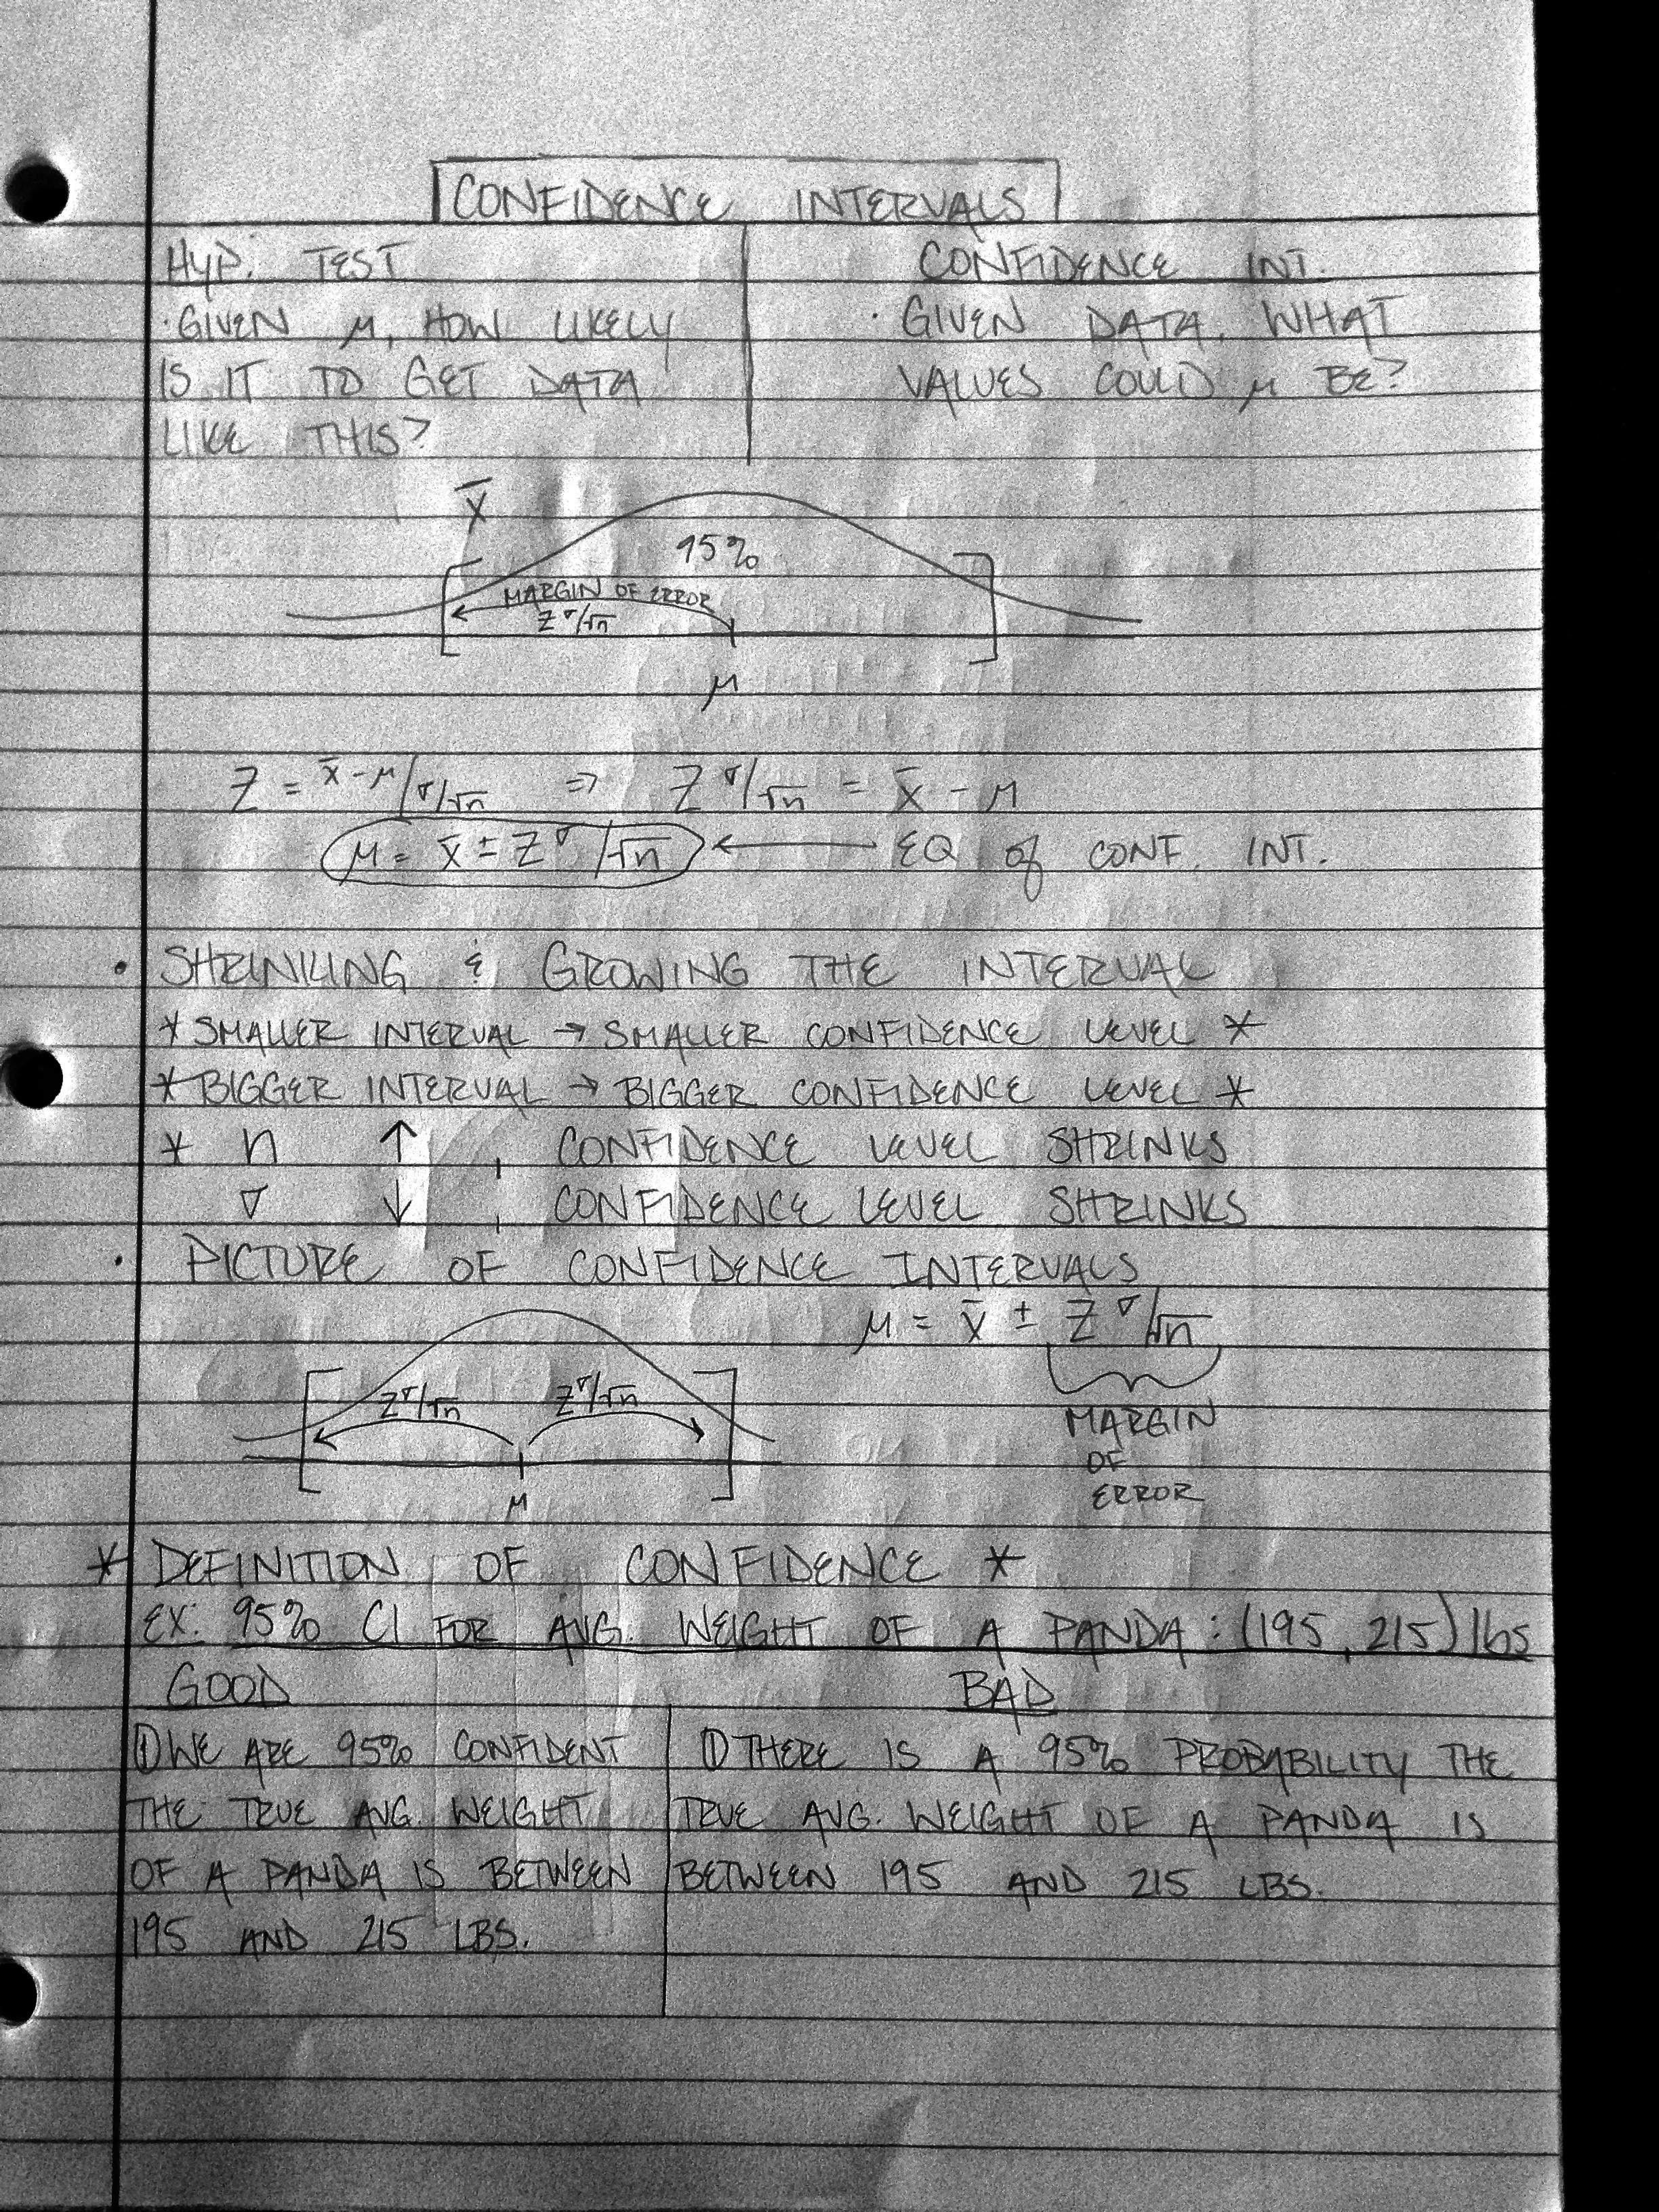 CONFIDENCE INTERVALS
HYP. TEST
· GIVEN μ, HOW LIKELY
IS IT TO GET DATA
LIKE THIS?
CONFIDENCE INT.
· GIVEN DATA, WHAT
VALUES COULD μ BE?
x̄
95%
MARGIN OF ERROR
Z σ/√n
μ
Z = x̄ - μ/σ/√n ⇒ Z σ/√n = x̄ - μ
μ = x̄ ± Z σ/√n ← EQ of CONF. INT.
• SHRINKING & GROWING THE INTERVAL
* SMALLER INTERVAL → SMALLER CONFIDENCE LEVEL *
* BIGGER INTERVAL → BIGGER CONFIDENCE LEVEL *
* n ↑, CONFIDENCE LEVEL SHRINKS
σ ↓, CONFIDENCE LEVEL SHRINKS
· PICTURE OF CONFIDENCE INTERVALS
μ = x̄ ± Z σ/√n
Z σ/√n Z σ/√n
μ
MARGIN
OF
ERROR
* DEFINITION OF CONFIDENCE *
EX: 95% CI FOR AVG. WEIGHT OF A PANDA: (195, 215) lbs
GOOD
① WE ARE 95% CONFIDENT
THE TRUE AVG. WEIGHT
OF A PANDA IS BETWEEN
195 AND 215 LBS.
BAD
① THERE IS A 95% PROBABILITY THE
TRUE AVG. WEIGHT OF A PANDA IS
BETWEEN 195 AND 215 LBS.